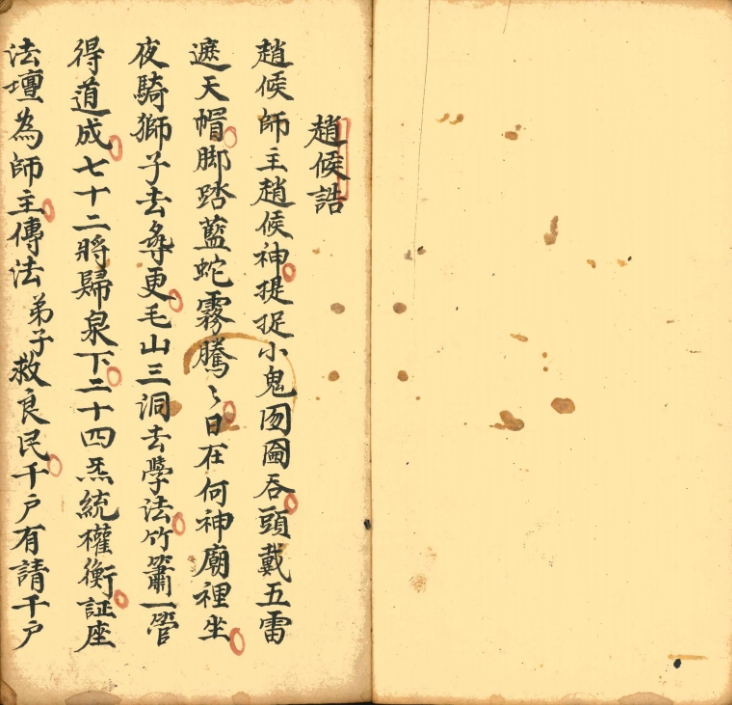 趙候誥
趙候師主趙候神提捉小鬼囫圇吞頭戴五雷
遮天帽脚踏藍蛇霧騰〻日在何神廟裡坐
夜騎獅子去尋更毛山三洞去學法竹簫一管
得道成七十二將歸泉下二十四炁統權衡証座
法壇為師主傳法弟子救良民千户有請千户